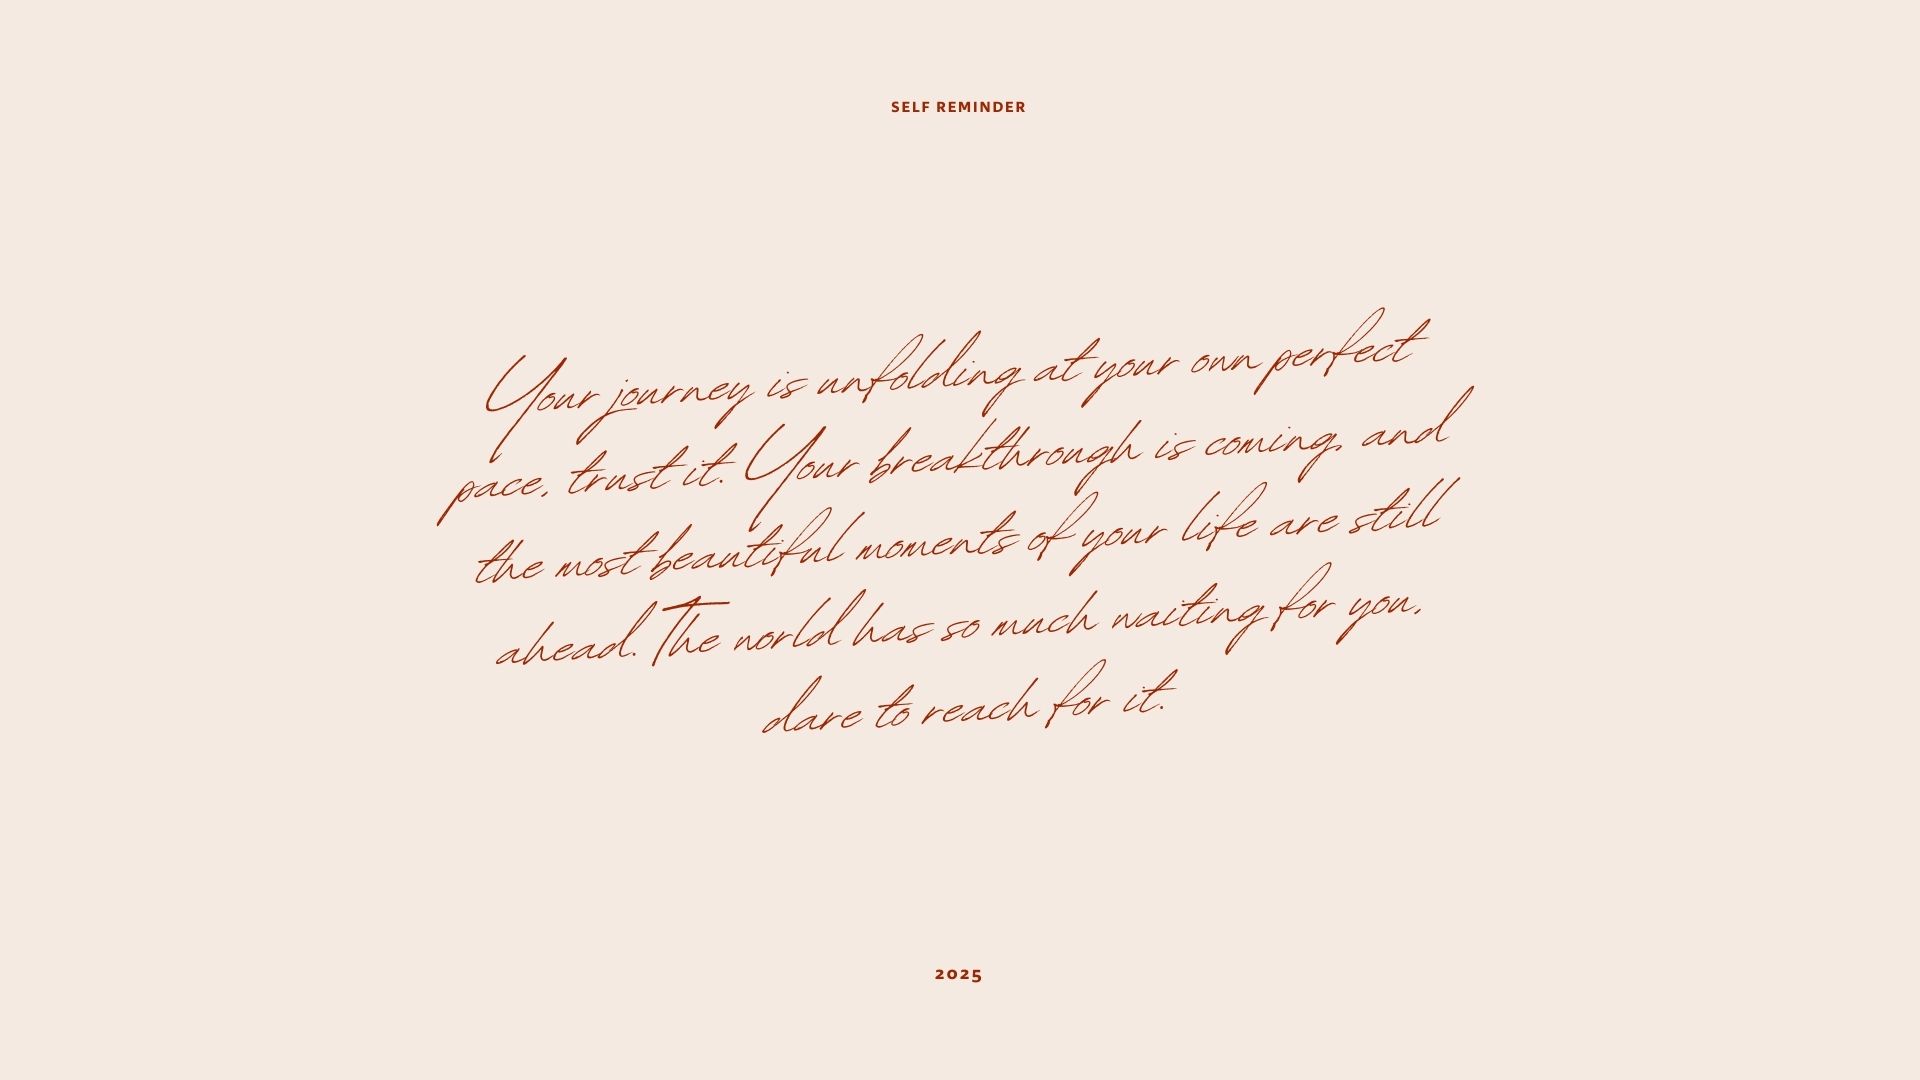 SELF REMINDER
Your journey is unfolding at your own perfect
pace, trust it. Your breakthrough is coming, and
the most beautiful moments of your life are still
ahead. The world has so much waiting for you,
dare to reach for it.
2025